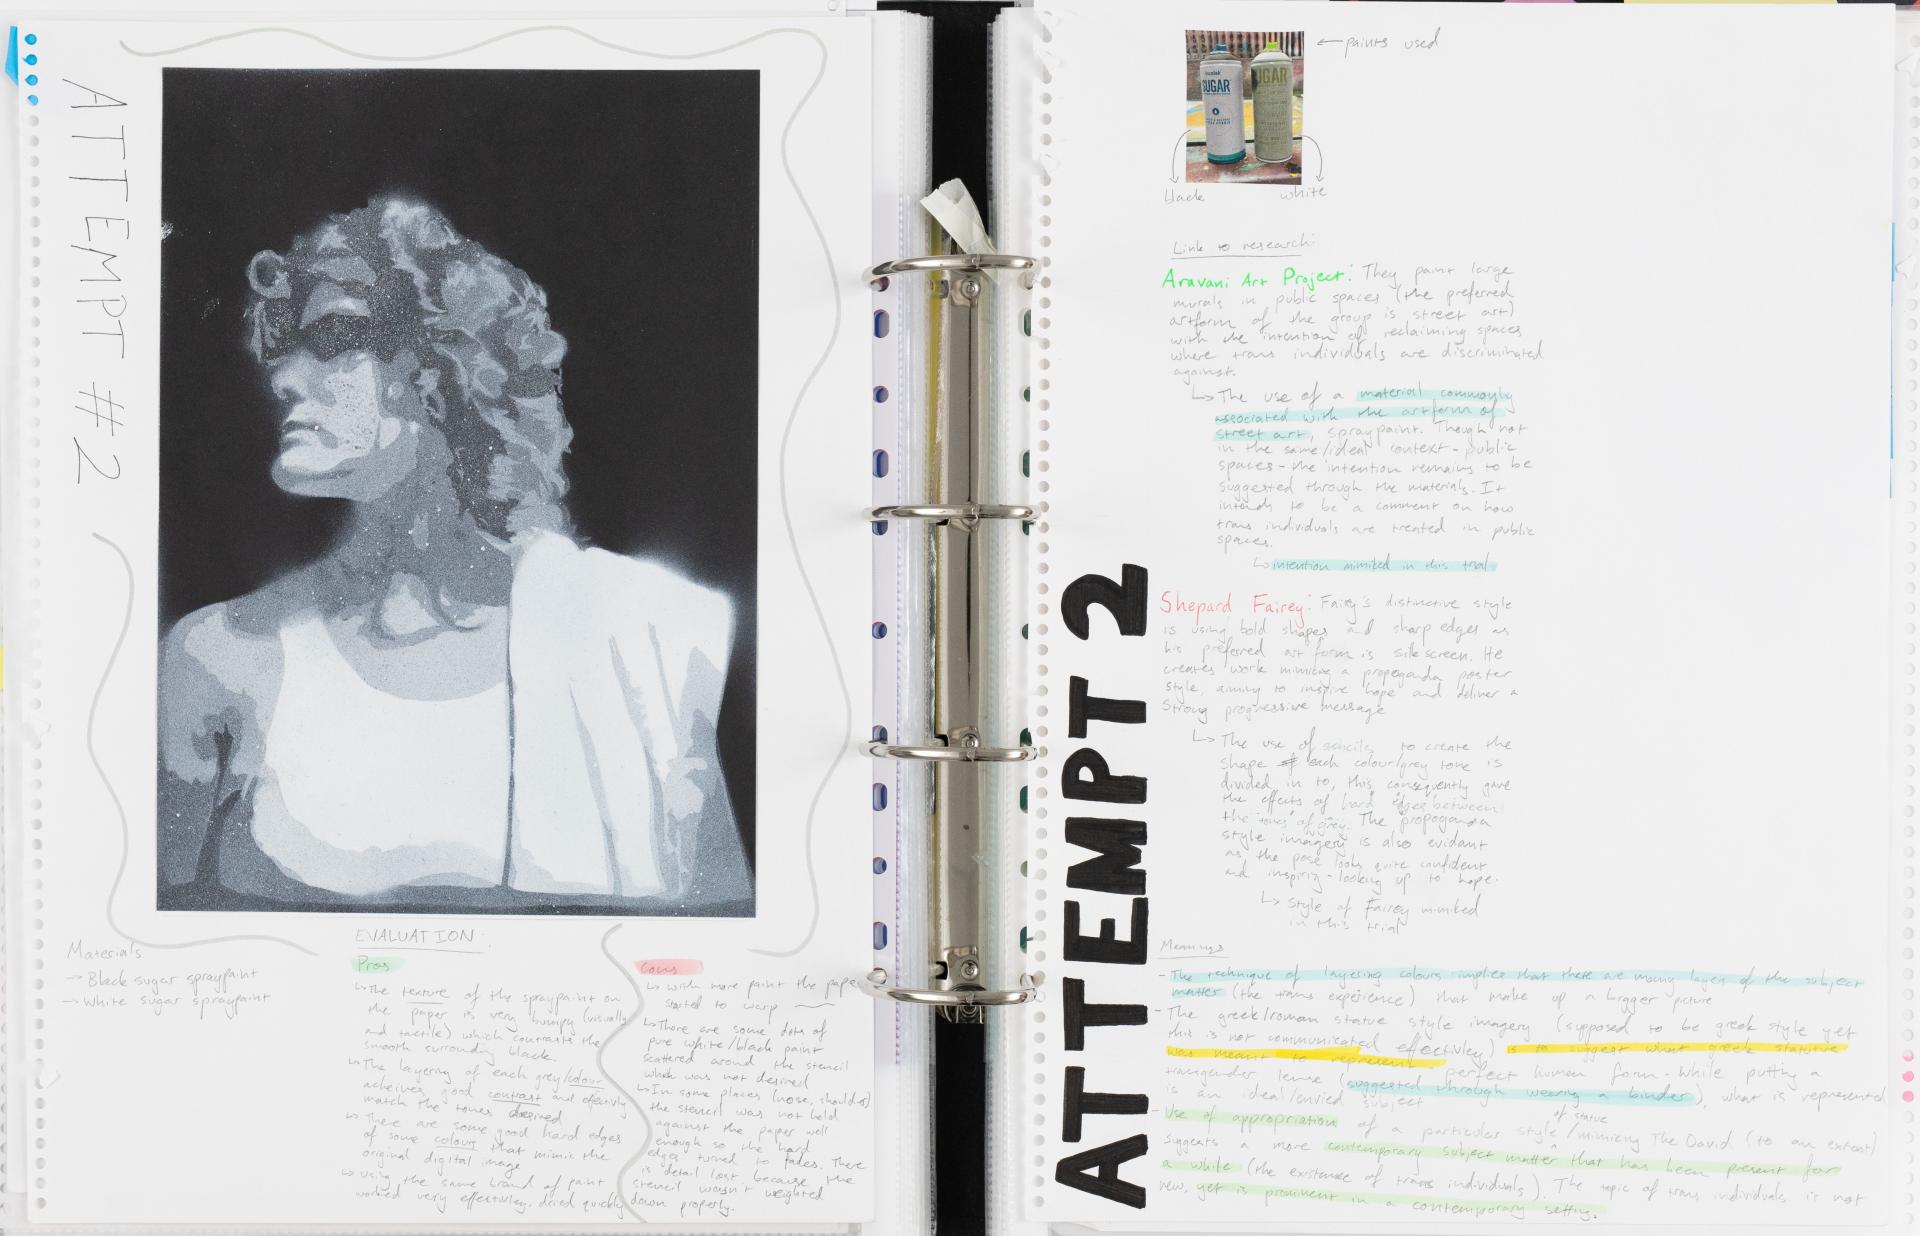 ATTEMPT #2
Materials
→ Black sugar spraypaint
→ White sugar spraypaint
EVALUATION:
Pros
↳ The texture of the spraypaint on
the paper is very bumpy (visually
and tactile) which contrasts the
smooth surrounding black.
↳ The layering of each grey/colour
acheives good contrast and effectivly
match the tones desired
↳ There are some good hard edges
of some colours that mimic the
original digital image
↳ using the same brand of paint
worked very effectivley. dried quickly
Cons
↳ with more paint the paper
started to warp
↳ There are some dots of
pure white/black paint
scattered around the stencil
which was not desired
↳ In some places (nose, shoulder)
the stencil was not held
against the paper well
enough so the hard
edges turned to fades. There
is detail lost because the
stencil wasn't weighted
down properly.
ATTEMPT 2
SUGAR
UGAR
← paints used
black
white
Link to research:
Aravani Art Project: They paint large
murals in public spaces (the preferred
artform of the group is street art)
with the intention of reclaiming spaces
where trans individuals are discriminated
against.
↳ The use of a material commonly
associated with the artform of
street art, spraypaint. Though not
in the same/ideal context - public
spaces - the intention remains to be
suggested through the materials. It
intends to be a comment on how
trans individuals are treated in public
spaces.
↳ intention mimiked in this trial
Shepard Fairey: Fairey's distinctive style
is using bold shapes and sharp edges as
his preferred art form is silkscreen. He
creates work mimicing a propoganda poster
style, aiming to inspire hope and deliver a
strong progressive message
↳ The use of stencils to create the
shape of each colour/grey tone is
divided in to, this consequently gave
the effects of hard edges between
the 'tones' of grey. The propoganda
style imagery is also evidant
as the pose looks quite confident
and inspiring - looking up to hope.
↳ Style of Fairey mimiked
in this trial
Meanings
- The technique of layering colours implies that there are many layers of the subject
matter (the trans experience) that make up a bigger picture
- The greek/roman statue style imagery (supposed to be greek style yet
this is not communicated effectivley) is to suggest what greek statutue
was meant to represent - perfect human form - while putting a
transgender lense (suggested through wearing a binder), what is represented
is an ideal/envied subject
- Use of appropriation of a particular style of statue/mimicing The David (to an extent)
suggests a more contemporary subject matter that has been present for
a while (the existance of trans individuals). The topic of trans individuals is not
new, yet is prominent in a contemporary setting.